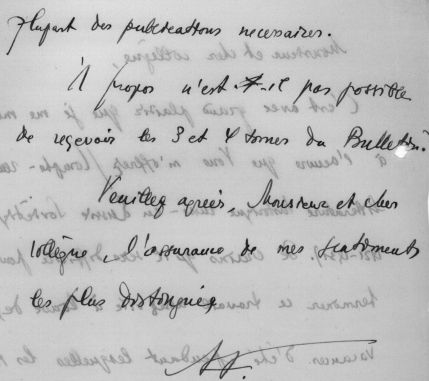 plupart des publications necessaires.
À propos n'est-il pas possible
de reçevoir les 3 et 4 tomes du Bulletin.
Veuillez agréer, Monsieur et cher
collègue, l'assurance de mes sentiments
les plus distingués